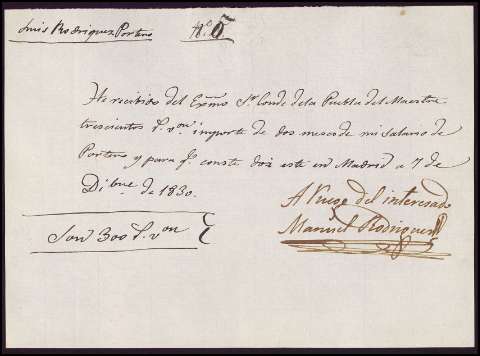 Luis Rodriguez Portero Nº 5
He recibido del Exmô Sr. Conde de la Puebla del Maestre
trescientos r.s von importe de dos meses de mi salario de
Portero y para q.e conste doi este en Madrid a 7 de
Dibre de 1830.
A ruego del interesado
Manuel Rodriguez
Son 300 r.s von